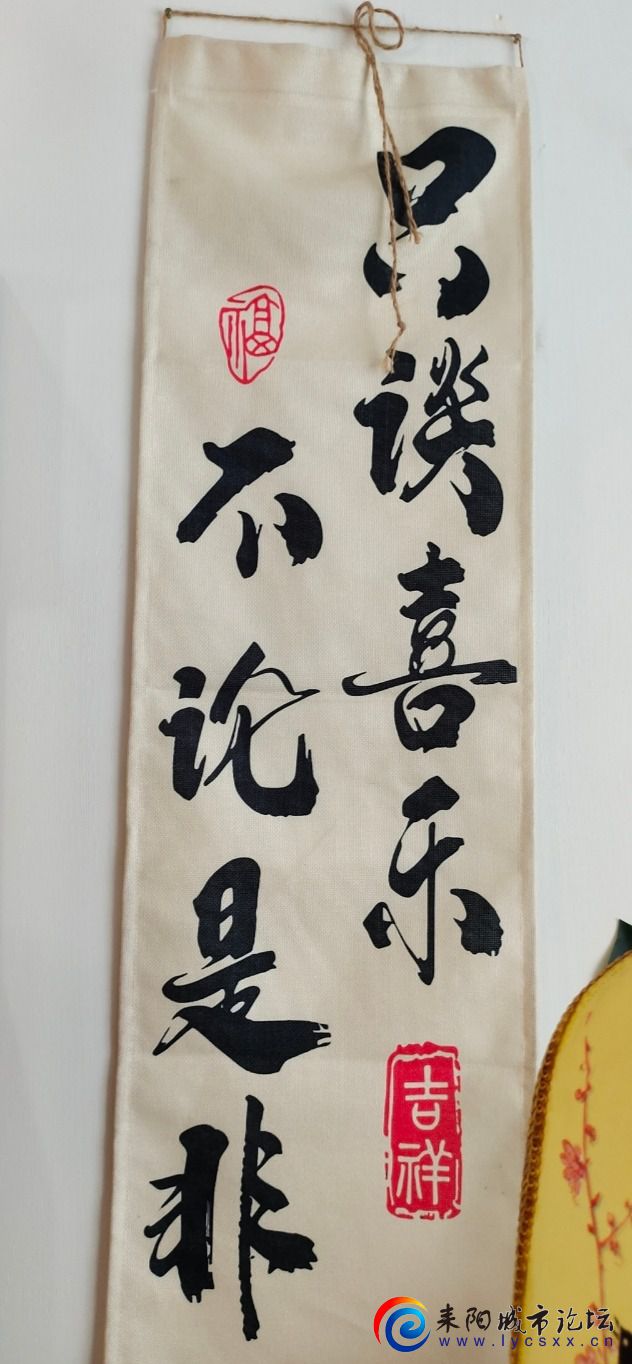 只谈喜乐
吉祥
福
不论是非
耒阳城市论坛
www.lycsxx.cn